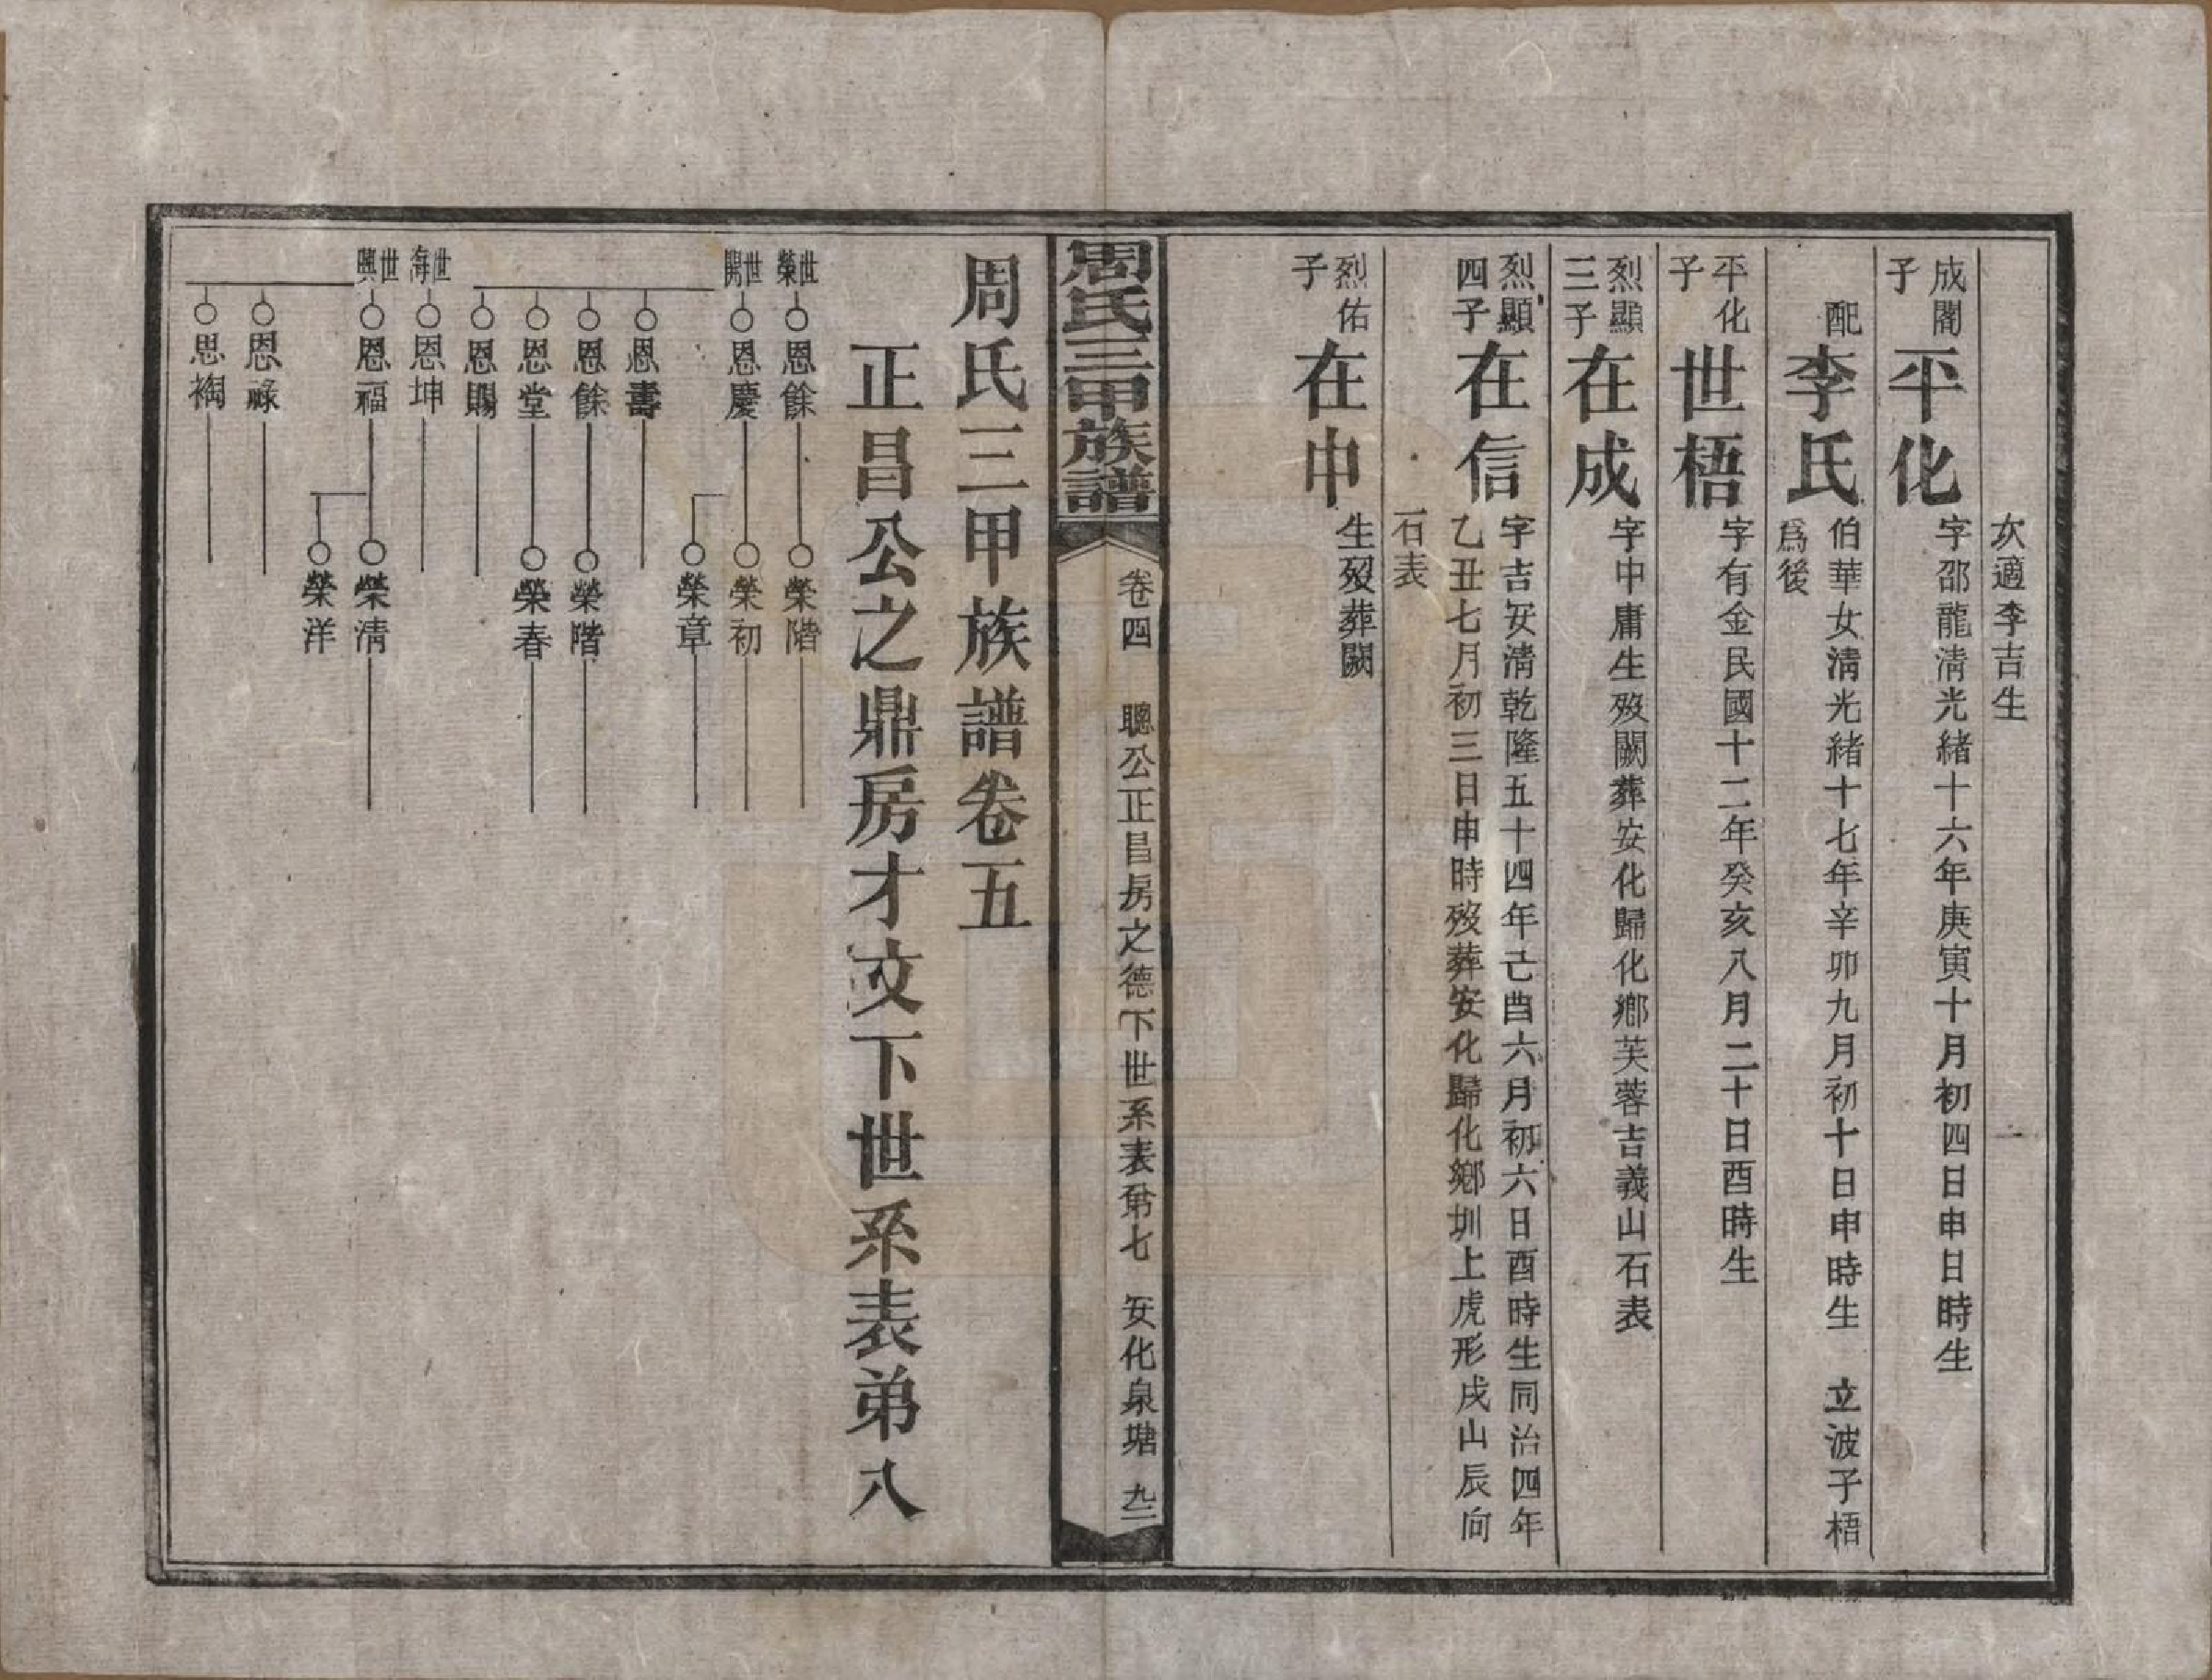 次適李吉生
成閣子
平化
字邵龍淸光緒十六年庚寅十月初四日申日時生
配
李氏
伯華女淸光緒十七年辛卯九月初十日申時生　立波子梧
爲後
平化子
世梧
字有金民國十二年癸亥八月二十日酉時生
烈顯三子
在成
字中庸生歿闕葬安化歸化鄉芙蓉吉義山石表
烈顯四子
在信
字吉安淸乾隆五十四年己酉六月初六日酉時生同治四年
乙丑七月初三日申時歿葬安化歸化鄉圳上虎形戌山辰向
石表
烈佑子
在申
生歿葬闕
周氏三甲族譜
卷四　聰公正昌房之德下世系表第七　安化泉塘　九二
周氏三甲族譜卷五
正昌公之鼎房才文下世系表弟八
世榮　恩餘　榮階
世開　恩慶　榮初
榮章
恩壽
恩餘　榮階
恩堂　榮春
恩賜
世海　恩坤
世興　恩福　榮淸
榮洋
恩祿
思裪